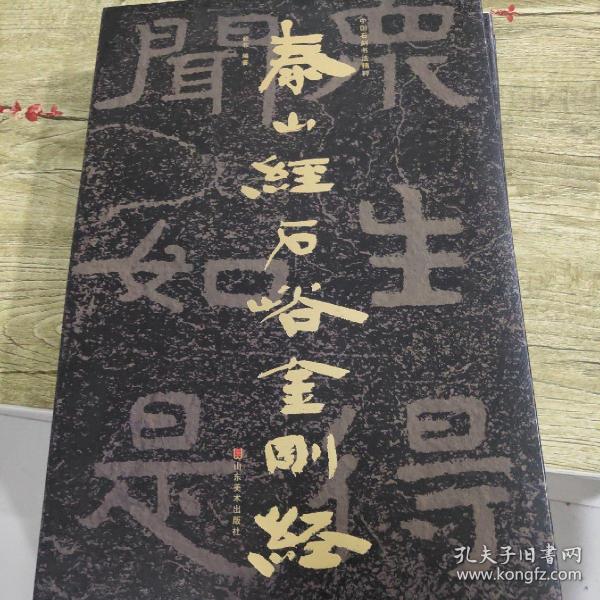 中国石刻书法精粹
泰山经石峪金剛经
编著
山东美术出版社
眾生得
聞如是
孔夫子旧书网
www.kongfz.com